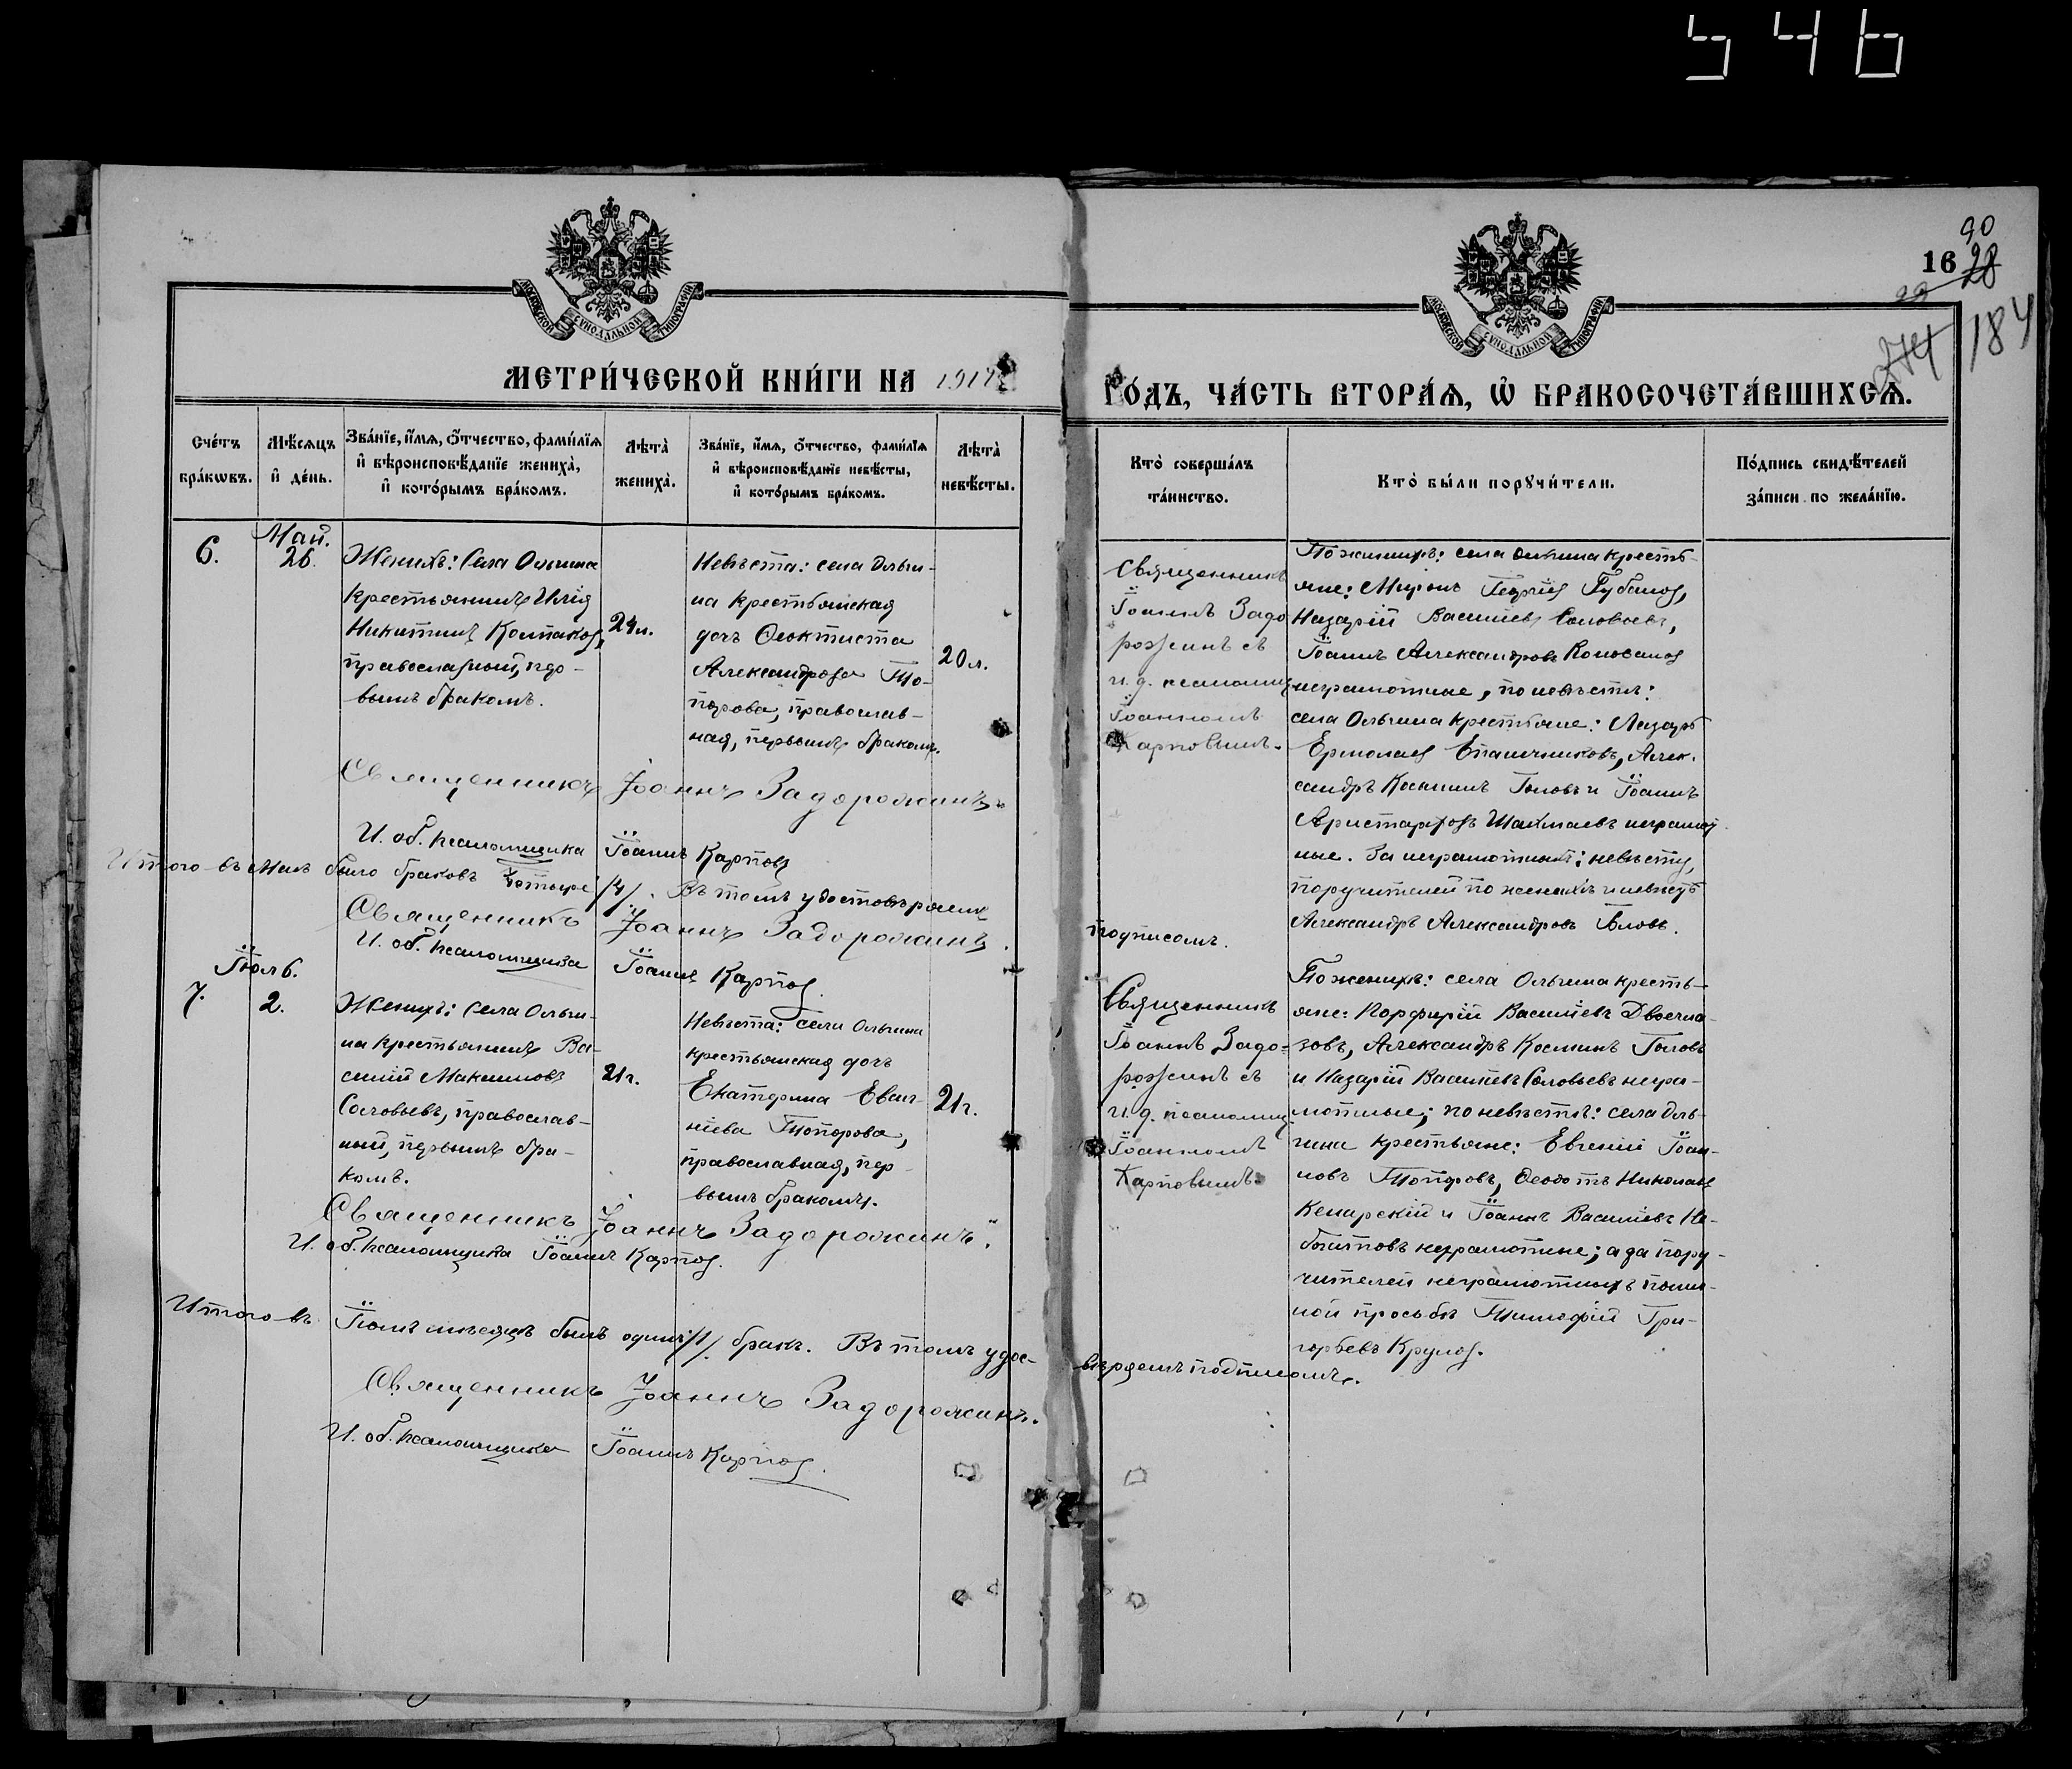 546
90
16 28
29
274 184
МОСКОВСКОЙ СѴНОДАЛЬНОЙ ТИПОГРАФІИ
МОСКОВСКОЙ СѴНОДАЛЬНОЙ ТИПОГРАФІИ
МЕТРИ́ЧЕСКОЙ КНИ́ГИ НА 1917
ГО́ДЪ, ЧА́СТЬ ВТОРА́Я, Ѡ҆ БРАКОСОЧЕТА́ВШИХСЯ.
Сче́тъ бра́кѡвъ.
Мѣ́сяцъ и҆ де́нь.
Зва́нїе, и҆́мя, ѻ҆́тчество, фами́лїя
и҆ вѣроисповѣ́данїе жениха̀,
и҆ кото́рымъ бра́комъ.
Лѣта̀ жениха̀.
Зва́нїе, и҆́мя, ѻ҆́тчество, фами́лїя
и҆ вѣроисповѣ́данїе невѣ́сты,
и҆ кото́рымъ бра́комъ.
Лѣта̀ невѣ́сты.
Кто̀ соверша́лъ
та́инство.
Кто̀ бы́ли порꙋчи́тели.
По́дпись свидѣ́телей
за́писи по жела́нїю.
6.
Май.
26.
Женихъ: Села Ольгина
крестьянинъ Илія
Никитинъ Колпаковъ,
православный, пер-
вымъ бракомъ.
24 л.
Невѣста: села Ольги-
на крестьянская
дочь Ѳеоктиста
Александрова То-
порова, православ-
ная, первымъ бракомъ.
20 л.
Священникъ
Іоаннъ Задо
рожинъ съ
и. д. псаломщ
Іоанномъ
Карповымъ.
По женихѣ: села Ольгина кресть-
яне: Миронъ Георгіевъ Губановъ,
Назарій Васильевъ Соловьевъ,
Іоаннъ Александровъ Коновалов
неграмотные, по невѣстѣ:
села Ольгина крестьяне: Лазарь
Ермолаев Епанчиковъ, Алек-
сандръ Косминъ Головъ и Іоаннъ
Аристарховъ Шахтаевъ неграмот-
ные. За неграмотныхъ: невѣсту,
поручителей по женихѣ и невѣстѣ
Александръ Александровъ Бловъ.
Священникъ Іоаннъ Задорожинъ
И. об. псаломщика Іоаннъ Карповъ
Итого въ Маѣ было браковъ четыре /4/. Въ томъ удостовѣряемъ
подписомъ.
Священникъ Іоаннъ Задорожинъ.
И. об. псаломщика Іоаннъ Карповъ.
Іюль.
7.
2.
Женихъ: Села Ольги-
на крестьянинъ Ва-
силій Максимовъ
Соловьевъ, православ-
ный, первымъ бра-
комъ.
21 г.
Невѣста: села Ольгина
крестьянская дочь
Екатерина Евге-
ніева Топорова,
православная, пер-
вымъ бракомъ.
21 г.
Священникъ
Іоаннъ Задо-
рожинъ съ
и. д. псаломщ.
Іоанномъ
Карповымъ.
По женихѣ: села Ольгина кресть-
яне: Порфирій Васильевъ Двоегла-
зовъ, Александръ Косминъ Головъ
и Назарій Васильевъ Соловьевъ негра-
мотные; по невѣстѣ: села Оль-
гина крестьяне: Евгеній Іоан-
новъ Топоровъ, Ѳеодотъ Николаев
Кенарскій и Іоаннъ Васильевъ Не-
бытовъ неграмотные; а за пору-
чителей неграмотныхъ по лич-
ной просьбѣ Тимофій Гри-
горьевъ Круловъ.
Священникъ Іоаннъ Задорожинъ.
И. об. псаломщика Іоаннъ Карповъ.
Итого въ Іюлѣ мѣсяцѣ былъ одинъ /1/ бракъ. Въ томъ удос-
вѣряемъ подписомъ.
Священникъ Іоаннъ Задорожинъ.
И. об. псаломщика Іоаннъ Карповъ.